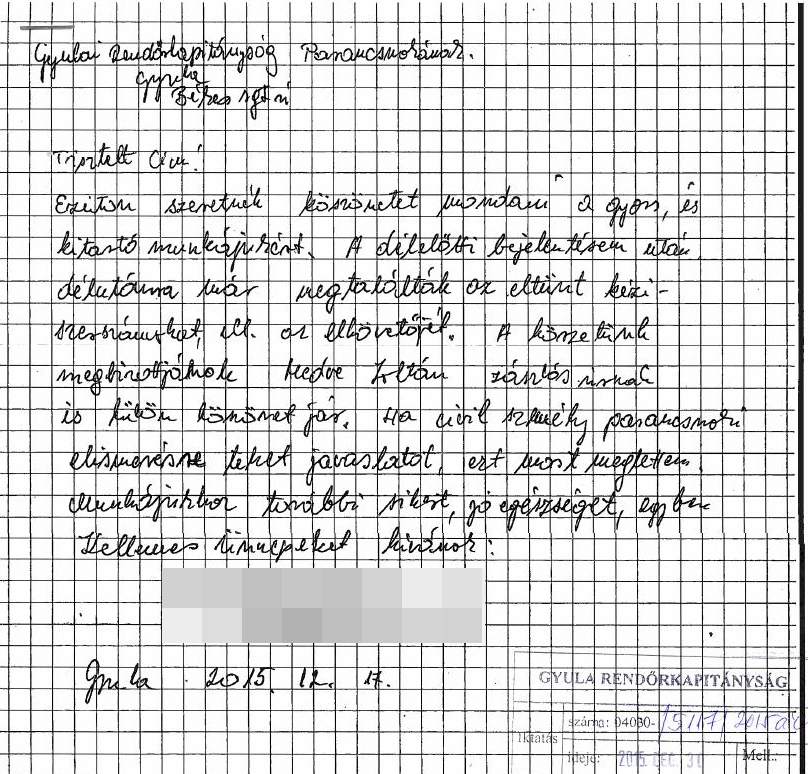 Gyulai Rendőrkapitányság Parancsnokának.
Gyula
Békés sgt u
Tisztelt Cím!
Ezúton szeretnék köszönetet mondani a gyors, és
kitartó munkájukért. A délelőtti bejelentésem után,
délutánra már megtalálták az eltünt kézi-
szerszámokat, ill. az elkövetőjét. A körzetünk
megbizottjának Medve Zoltán zászlós úrnak
is külön köszönet jár. Ha civil személy parancsnoki
elismerésre tehet javaslatot, ezt most megtettem.
Munkájukhoz további sikert, jó egészséget, egyben
Kellemes Ünnepeket kívánok:
Gyula 2015. 12. 17.
GYULA RENDŐRKAPITÁNYSÁG
száma: 04030-/5117/2015
Iktatás
ideje: 2015 DEC. 3
Mell.: